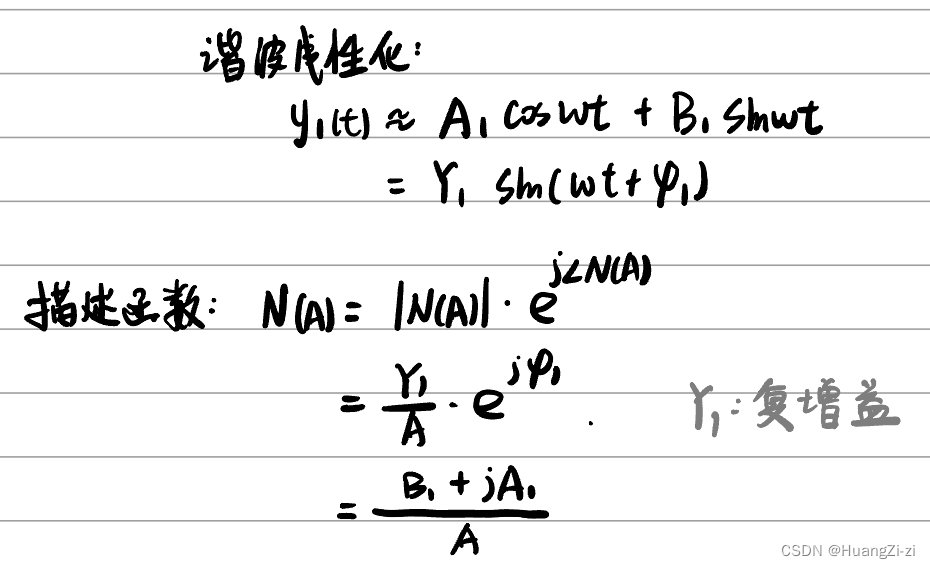 谐波线性化:
y₁(t) ≈ A₁ cos wt + B₁ sin wt
= Y₁ sin(wt + φ₁)
描述函数: N(A) = |N(A)| · e^{j∠N(A)}
= Y₁/A · e^{jφ₁} . Y₁: 复增益
= (B₁ + jA₁)/A
CSDN @HuangZi-zi